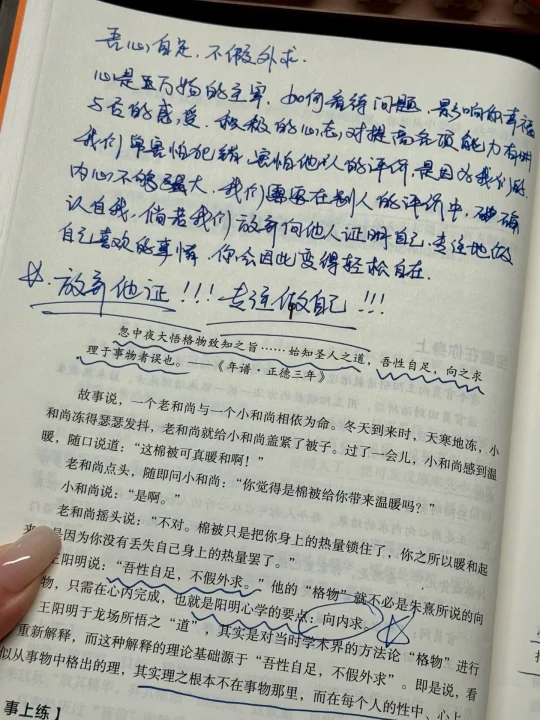 吾心自足，不假外求.
心是五万物的主宰，如何看待问题，影响你幸福
与否的感受.积极的心态，对提高各项能力有帮
我们常害怕犯错，害怕他人的评价，是因为我们的
内心不够强大，我们需要在别人的评价中，确
认自我，倘若我们放弃向他人证明自己，专注地做
自己喜欢的事情，你会因此变得轻松自在.
☆.放弃他证！！！专注做自己！！！
忽中夜大悟格物致知之旨……始知圣人之道，吾性自足，向之求
理于事物者误也。——《年谱·正德三年》
故事说，一个老和尚与一个小和尚相依为命。冬天到来时，天寒地冻，小
和尚冻得瑟瑟发抖，老和尚就给小和尚盖紧了被子。过了一会儿，小和尚感到温
暖，随口说道：“这棉被可真暖和啊！”
老和尚点头，随即问小和尚：“你觉得是棉被给你带来温暖吗？”
小和尚说：“是啊。”
老和尚摇头说：“不对。棉被只是把你身上的热量锁住了，你之所以暖和起
来，是因为你没有丢失自己身上的热量罢了。”
王阳明说：“吾性自足，不假外求。”他的“格物”就不必是朱熹所说的向
物，只需在心内完成，也就是阳明心学的要点：向内求。
王阳明于龙场所悟之“道”，其实是对当时学术界的方法论“格物”进行
重新解释，而这种解释的理论基础源于“吾性自足，不假外求”。即是说，看
似从事物中格出的理，其实理之根本不在事物那里，而在每个人的性中、心上。
事上练】